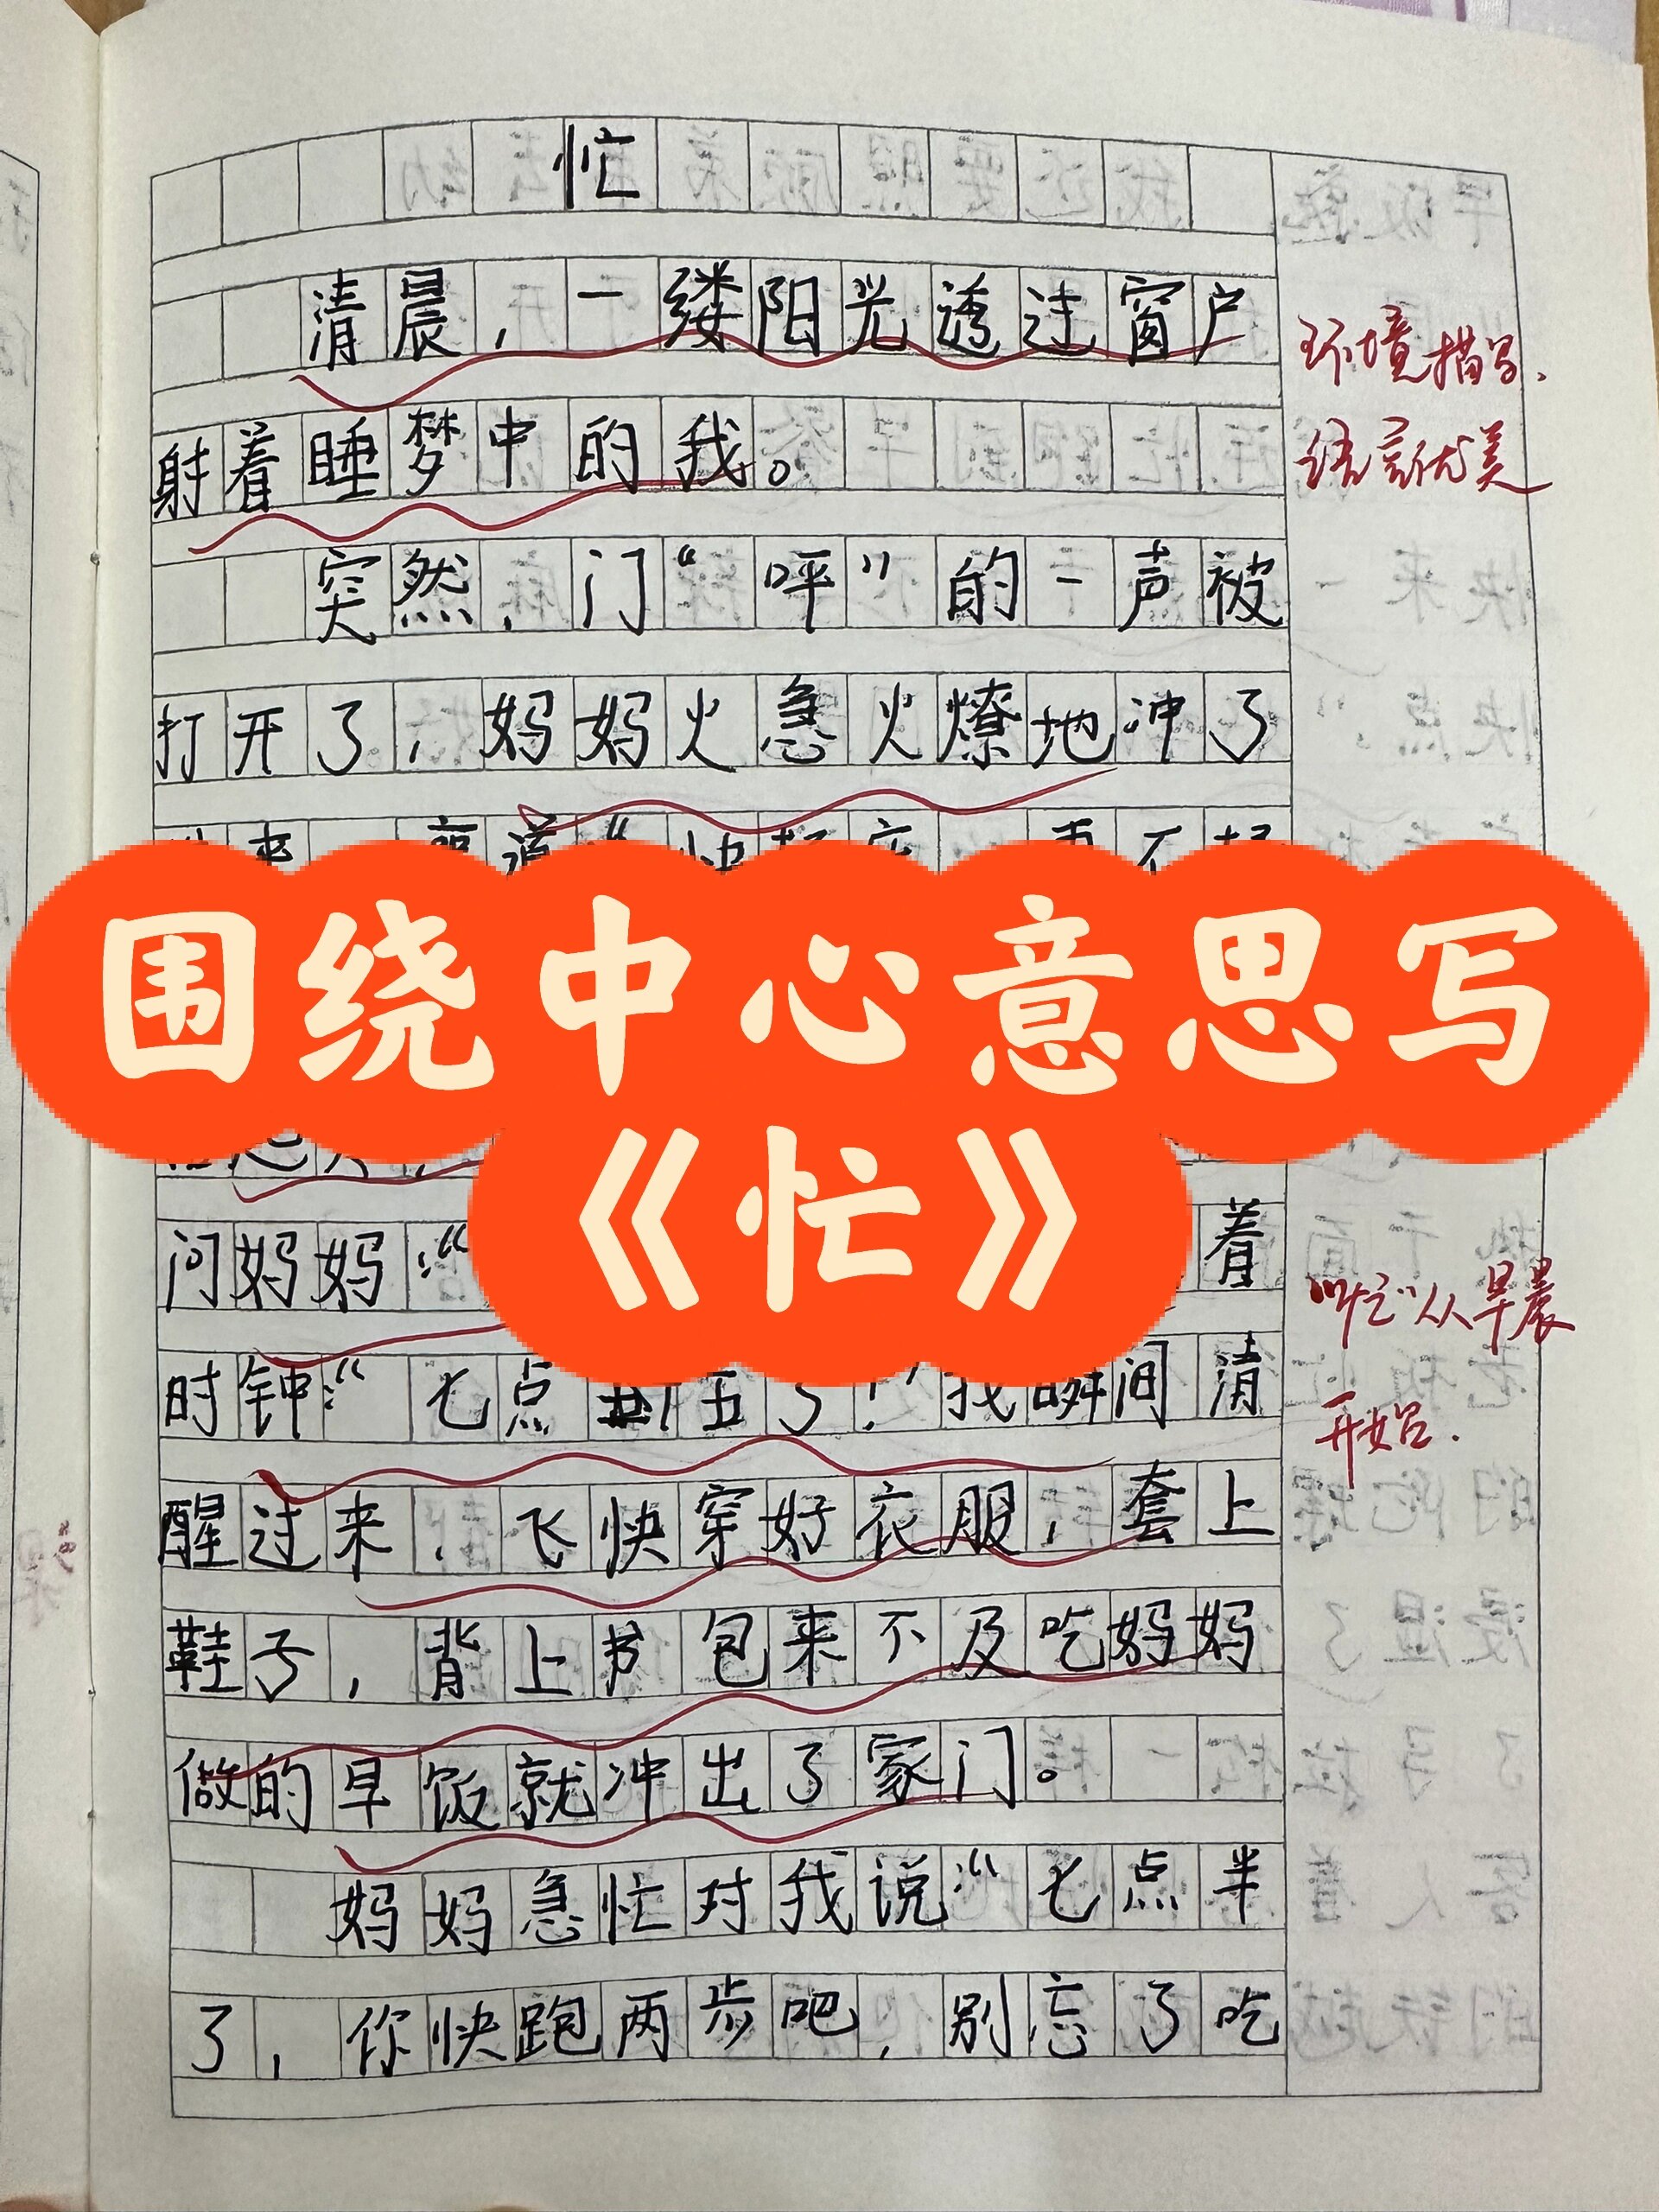 忙
清晨，一缕阳光透过窗户
环境描写、
射着睡梦中的我。
语言优美
突然，门“呯”的一声被
打开了，妈妈火急火燎地冲了
来
道：“快
不
围绕中心意思写
《忙》
问妈妈：“
着
“忙”从早晨
时钟：“七点五了！”我瞬间清
开始.
醒过来，飞快穿好衣服，套上
鞋子，背上书包来不及吃妈妈
做的早饭就冲出了家门。
妈妈急忙对我说：“七点半
了，你快跑两步吧，别忘了吃